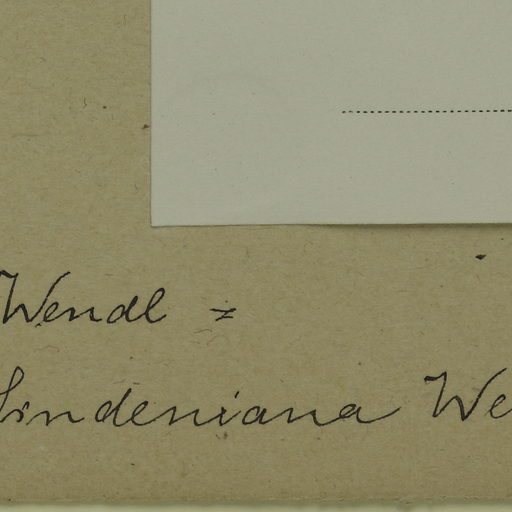 Wendl =
Lindeniana We